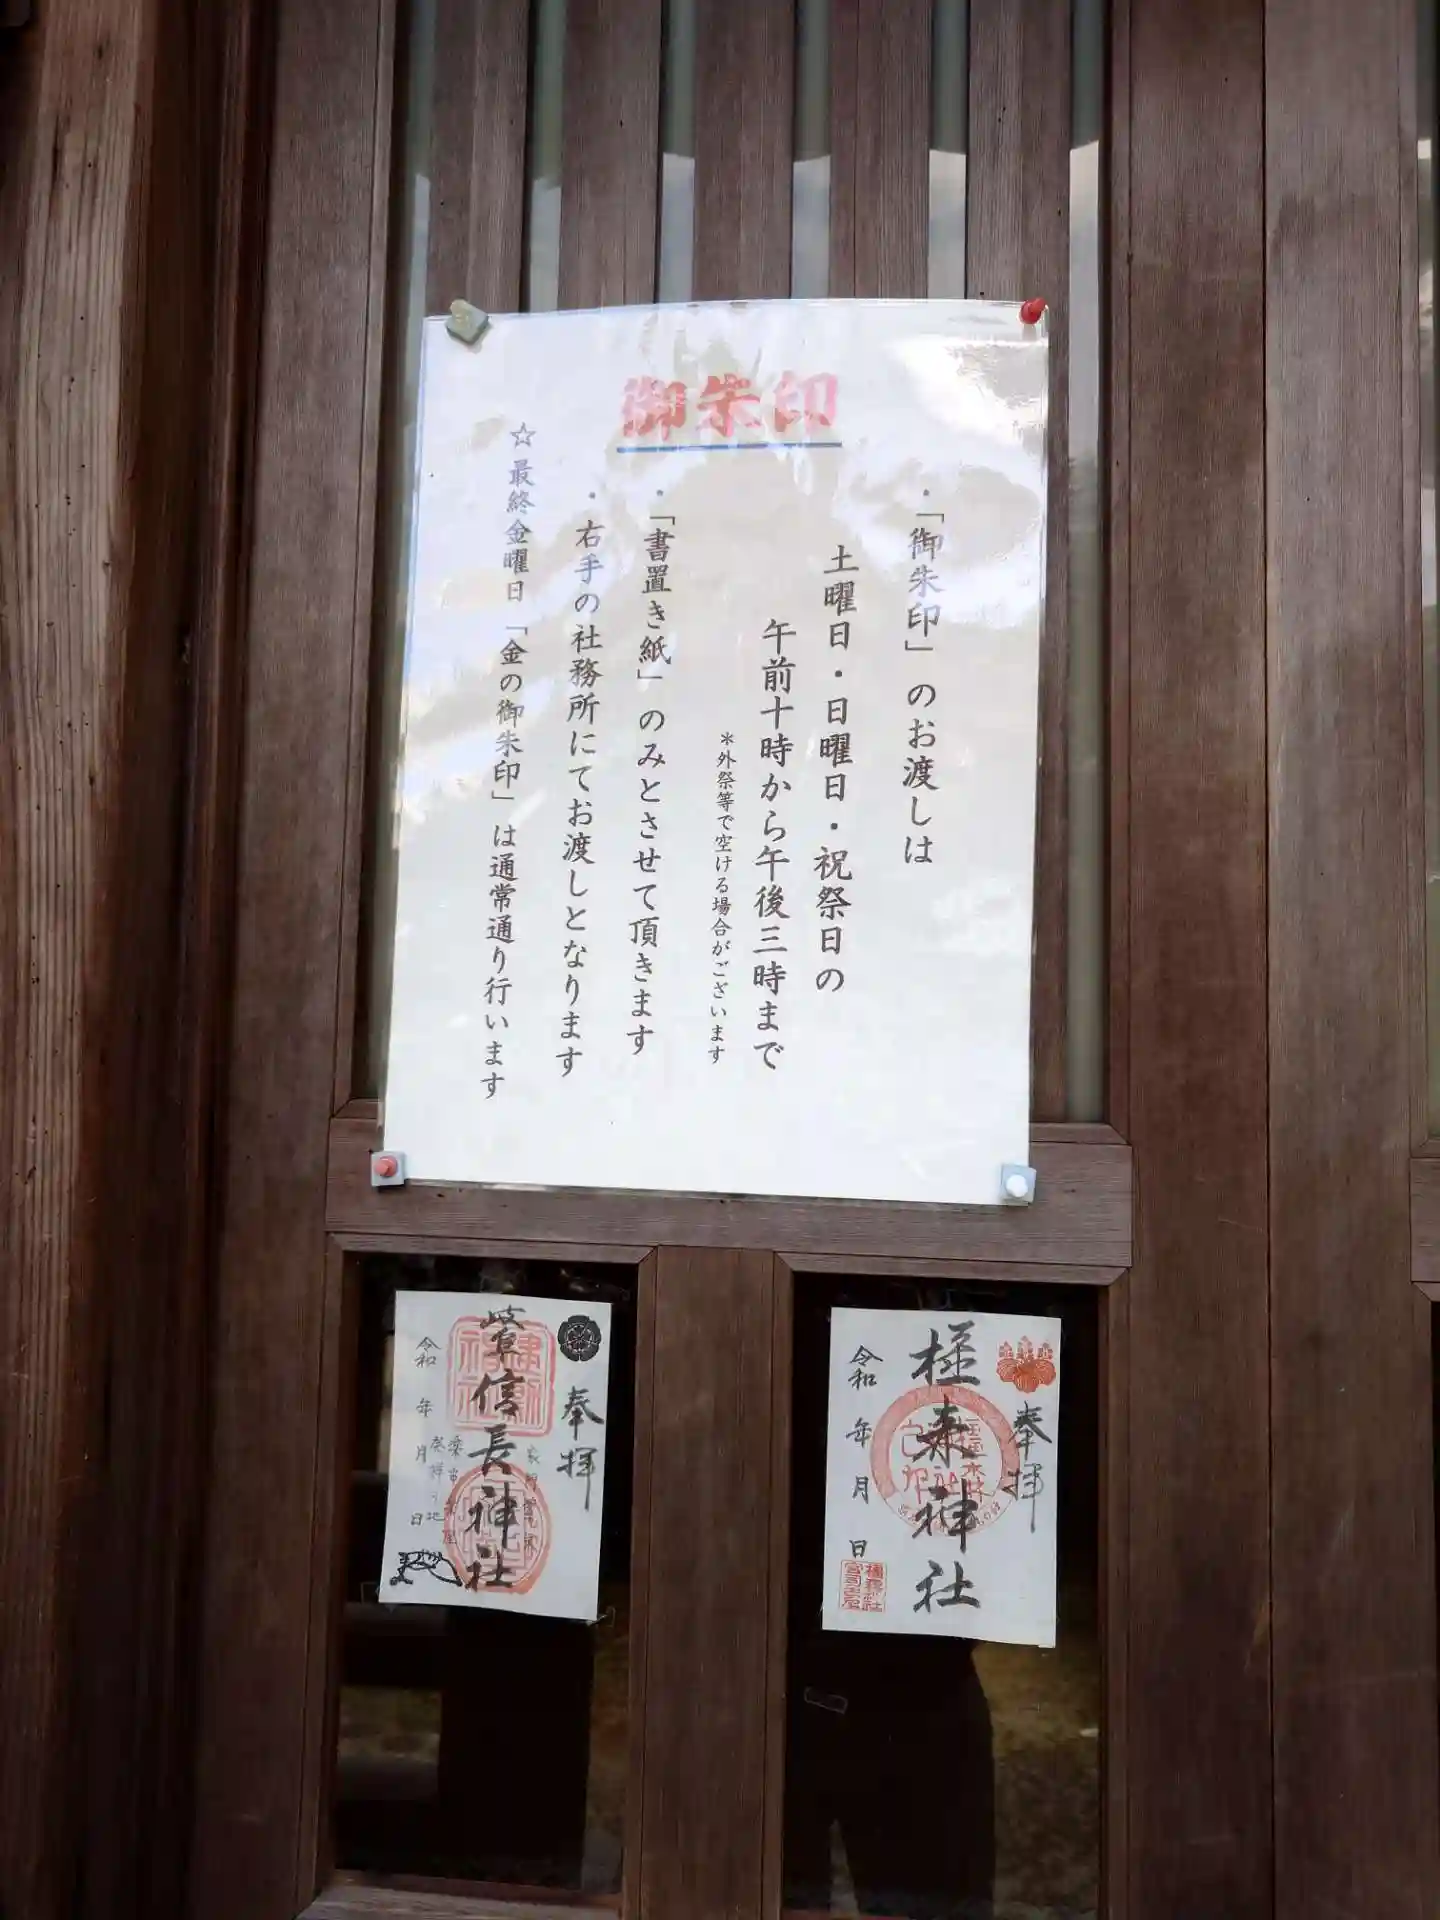 御朱印
・「御朱印」のお渡しは
土曜日・日曜日・祝祭日の
午前十時から午後三時まで
＊外祭等で空ける場合がございます
・「書置き紙」のみとさせて頂きます
・右手の社務所にてお渡しとなります
☆最終金曜日「金の御朱印」は通常通り行います
奉拝
橿森神社
令和 年 月 日
奉拝
信長神社
令和 年 月 日